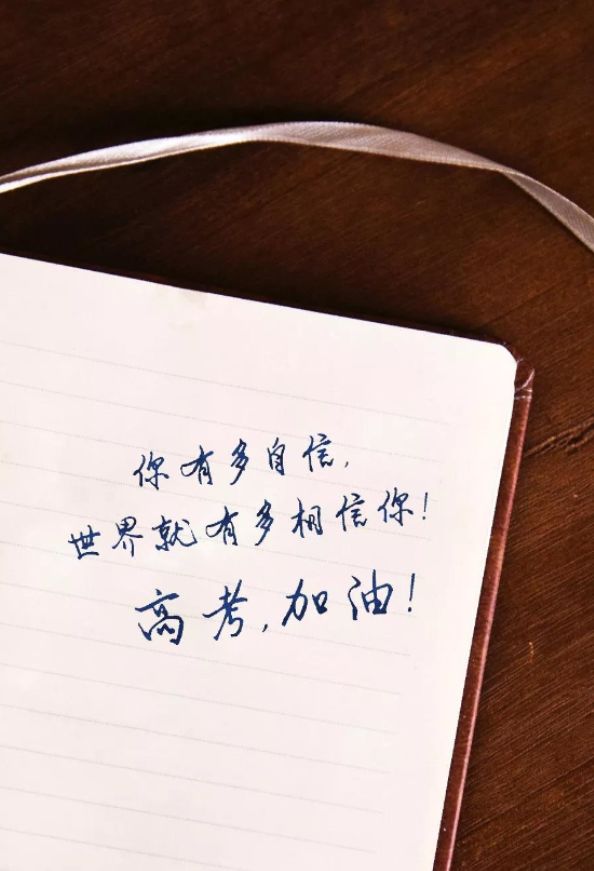 你有多自信,
世界就有多相信你!
高考,加油!